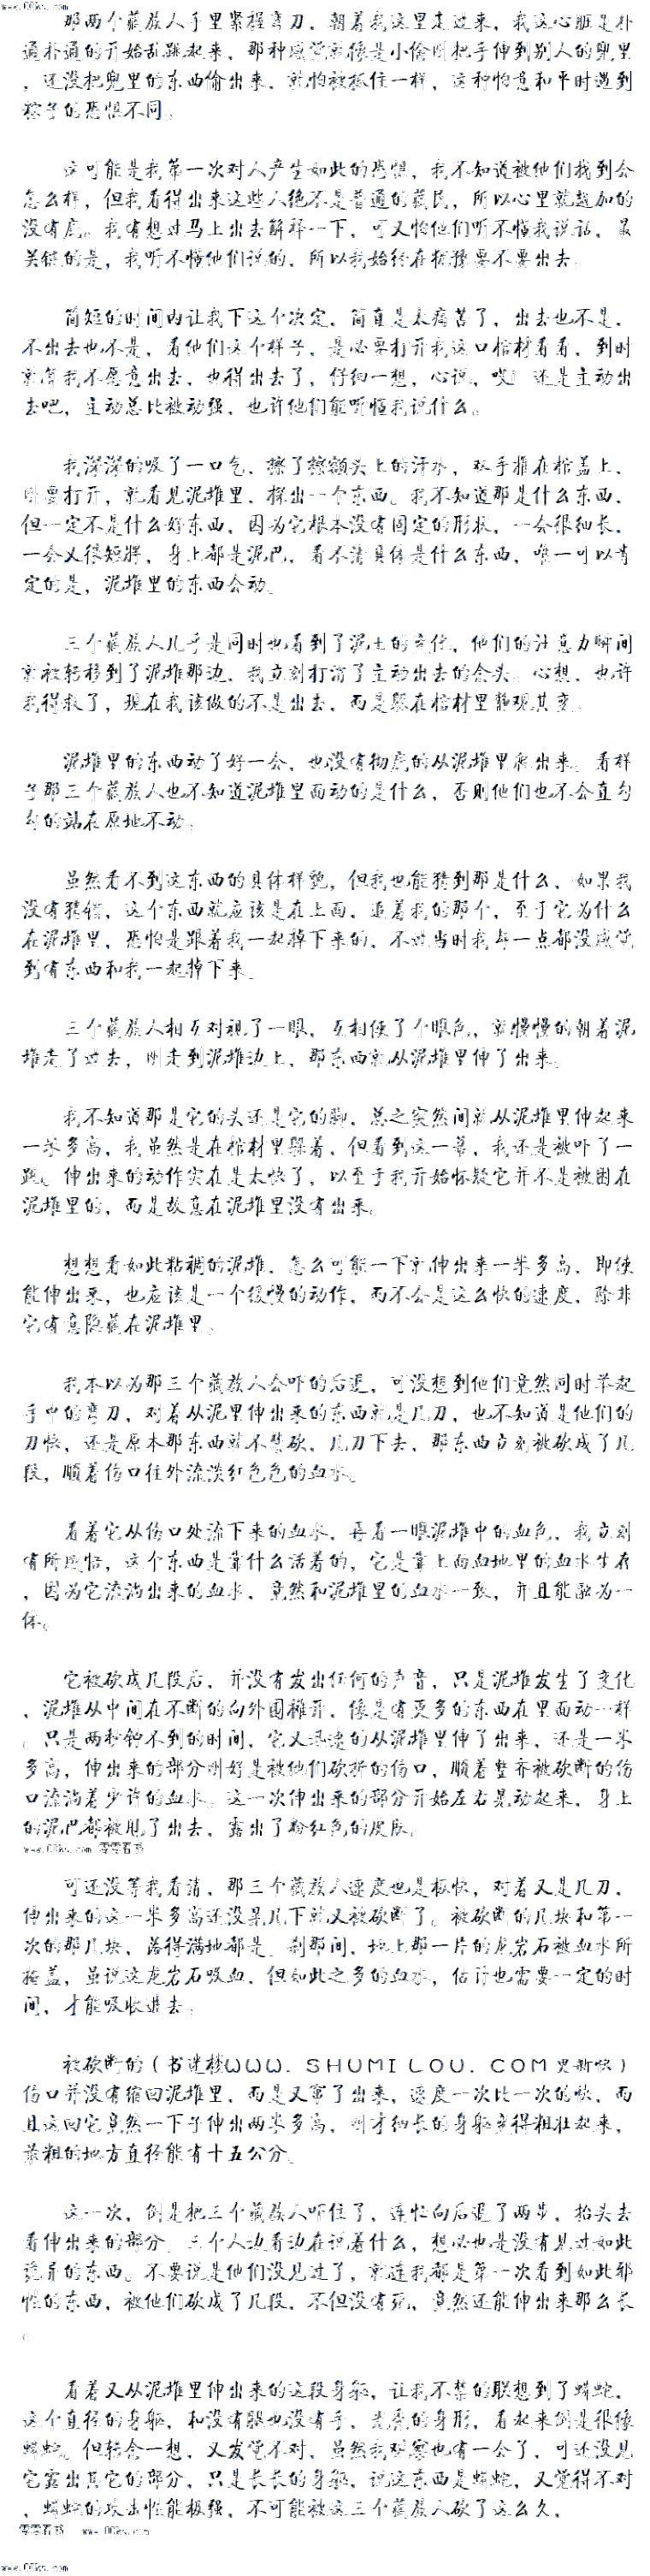 www.00ks.com
那两个藏族人手里紧握弯刀，朝着我这里走过来，我这心脏是扑
通扑通的开始乱跳起来，那种感觉就像是小偷刚把手伸到别人的兜里
，还没把兜里的东西偷出来，就怕被抓住一样，这种怕意和平时遇到
粽子的恐惧不同。
这可能是我第一次对人产生如此的恐惧，我不知道被他们找到会
怎么样，但我看得出来这些人绝不是普通的藏民，所以心里就越加的
没有底。我有想过马上出去解释一下，可又怕他们听不懂我说话，最
关键的是，我听不懂他们说的，所以我始终在犹豫要不要出去。
简短的时间内让我下这个决定，简直是太痛苦了，出去也不是，
不出去也不是，看他们这个样子，是必要打开我这口棺材看看，到时
就算我不愿意出去，也得出去了，仔细一想，心说，哎！还是主动出
去吧，主动总比被动强，也许他们能听懂我说什么。
我深深的吸了一口气，擦了擦额头上的汗水，双手推在棺盖上，
刚要打开，就看见泥堆里，探出一个东西。我不知道那是什么东西，
但一定不是什么好东西，因为它根本没有固定的形状，一会很细长，
一会又很短胖，身上都是泥巴，看不清具体是什么东西，唯一可以肯
定的是，泥堆里的东西会动。
三个藏族人几乎是同时也看到了泥土的变化，他们的注意力瞬间
就被转移到了泥堆那边，我立刻打消了主动出去的念头。心想，也许
我得救了，现在我该做的不是出去，而是躲在棺材里静观其变。
泥堆里的东西动了好一会，也没有彻底的从泥堆里爬出来。看样
子那三个藏族人也不知道泥堆里面动的是什么，否则他们也不会直勾
勾的站在原地不动。
虽然看不到这东西的具体样貌，但我也能猜到那是什么，如果我
没有猜错，这个东西就应该是在上面，追着我的那个，至于它为什么
在泥堆里，恐怕是跟着我一起掉下来的，不过当时我却一点都没感觉
到有东西和我一起掉下来。
三个藏族人相互对视了一眼，互相使了个眼色，就慢慢的朝着泥
堆走了过去，刚走到泥堆边上，那东西就从泥堆里伸了出来。
我不知道那是它的头还是它的脚，总之突然间就从泥堆里伸起来
一米多高，我虽然是在棺材里躲着，但看到这一幕，我还是被吓了一
跳。伸出来的动作实在是太快了，以至于我开始怀疑它并不是被困在
泥堆里的，而是故意在泥堆里没有出来。
想想看如此粘稠的泥堆，怎么可能一下就伸出来一米多高，即使
能伸出来，也应该是一个缓慢的动作，而不会是这么快的速度，除非
它有意隐藏在泥堆里。
我本以为那三个藏族人会吓的后退，可没想到他们竟然同时举起
手中的弯刀，对着从泥里伸出来的东西就是几刀，也不知道是他们的
刀快，还是原本那东西就不禁砍，几刀下去，那东西立刻被砍成了几
段，顺着伤口往外流淡红色色的血水。
看着它从伤口处流下来的血水，再看一眼泥堆中的血色，我立刻
有所感悟，这个东西是靠什么活着的，它是靠上面血地里的血水生存
，因为它流淌出来的血水，竟然和泥堆里的血水一致，并且能融为一
体。
它被砍成几段后，并没有发出任何的声音，只是泥堆发生了变化
，泥堆从中间在不断的向外围推开，像是有更多的东西在里面动一样
。只是两秒钟不到的时间，它又迅速的从泥堆里伸了出来，还是一米
多高，伸出来的部分刚好是被他们砍折的伤口，顺着整齐被砍断的伤
口流淌着少许的血水。这一次伸出来的部分开始左右晃动起来，身上
的泥巴都被甩了出去，露出了粉红色的皮肤。
www.00ks.com 零零看书
可还没等我看清，那三个藏族人速度也是极快，对着又是几刀，
伸出来的这一米多高还没晃几下就又被砍断了。被砍断的几块和第一
次的那几块，落得满地都是，刹那间，地上那一片的龙岩石被血水所
掩盖，虽说这龙岩石吸血，但如此之多的血水，估计也需要一定的时
间，才能吸收进去。
被砍断的（书迷楼ＷＷＷ．ＳＨＵＭＩＬＯＵ．ＣＯＭ更新快）
伤口并没有缩回泥堆里，而是又窜了出来，速度一次比一次的快，而
且这回它竟然一下子伸出两米多高，刚才细长的身躯变得粗壮起来，
最粗的地方直径能有十五公分。
这一次，倒是把三个藏族人吓住了，连忙向后退了两步，抬头去
看伸出来的部分。三个人边看边在说着什么，想必也是没有见过如此
诡异的东西。不要说是他们没见过了，就连我都是第一次看到如此邪
性的东西，被他们砍成了几段，不但没有死，竟然还能伸出来那么长
。
看着又从泥堆里伸出来的这段身躯，让我不禁的联想到了蟒蛇，
这个直径的身躯，和没有腿也没有手，光秃的身形，看起来倒是很像
蟒蛇。但转念一想，又发觉不对，虽然我观察也有一会了，可还没见
它露出其它的部分，只是长长的身躯，说这东西是蟒蛇，又觉得不对
，蟒蛇的攻击性能极强，不可能被这三个藏族人砍了这么久，
零零看书 www.00ks.com
www.00ks.com